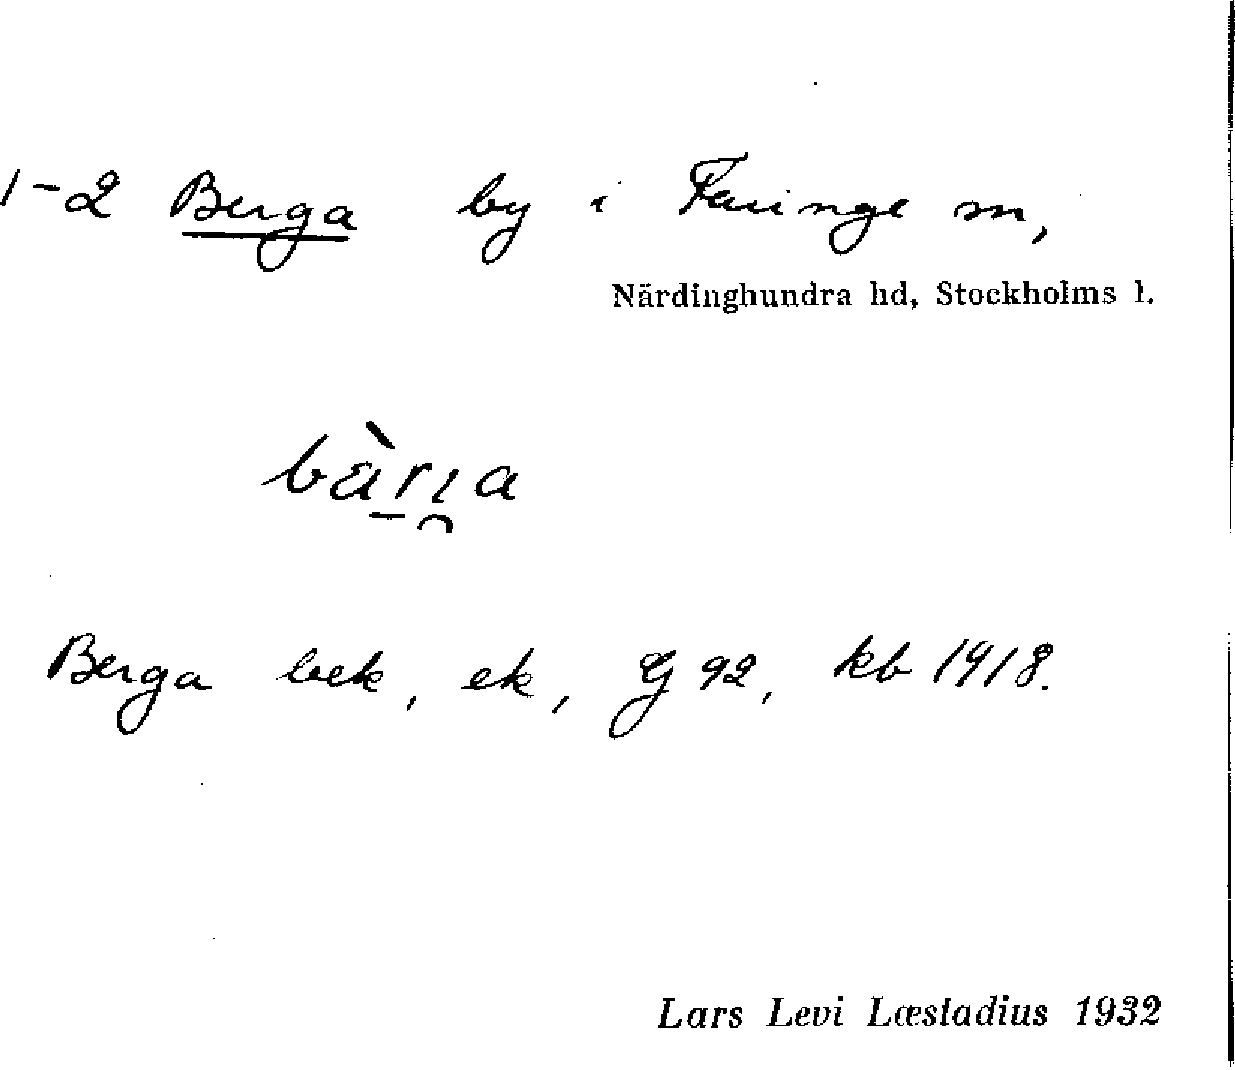 1-2 Berga by i Faringe sn,
Närdinghundra hd, Stockholms l.
bà̱rı̯a
Berga bek, ek, G 92, kb 1918.
Lars Levi Læstadius 1932